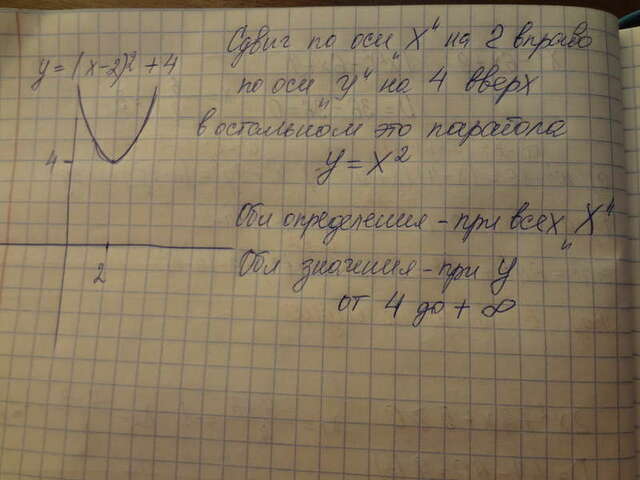 y = (x-2)² + 4
4
2
Сдвиг по оси "X" на 2 вправо
по оси "У" на 4 вверх
в остальном это парабола
y = x²
Обл определения - при всех "X"
Обл значения - при У
от 4 до + ∞